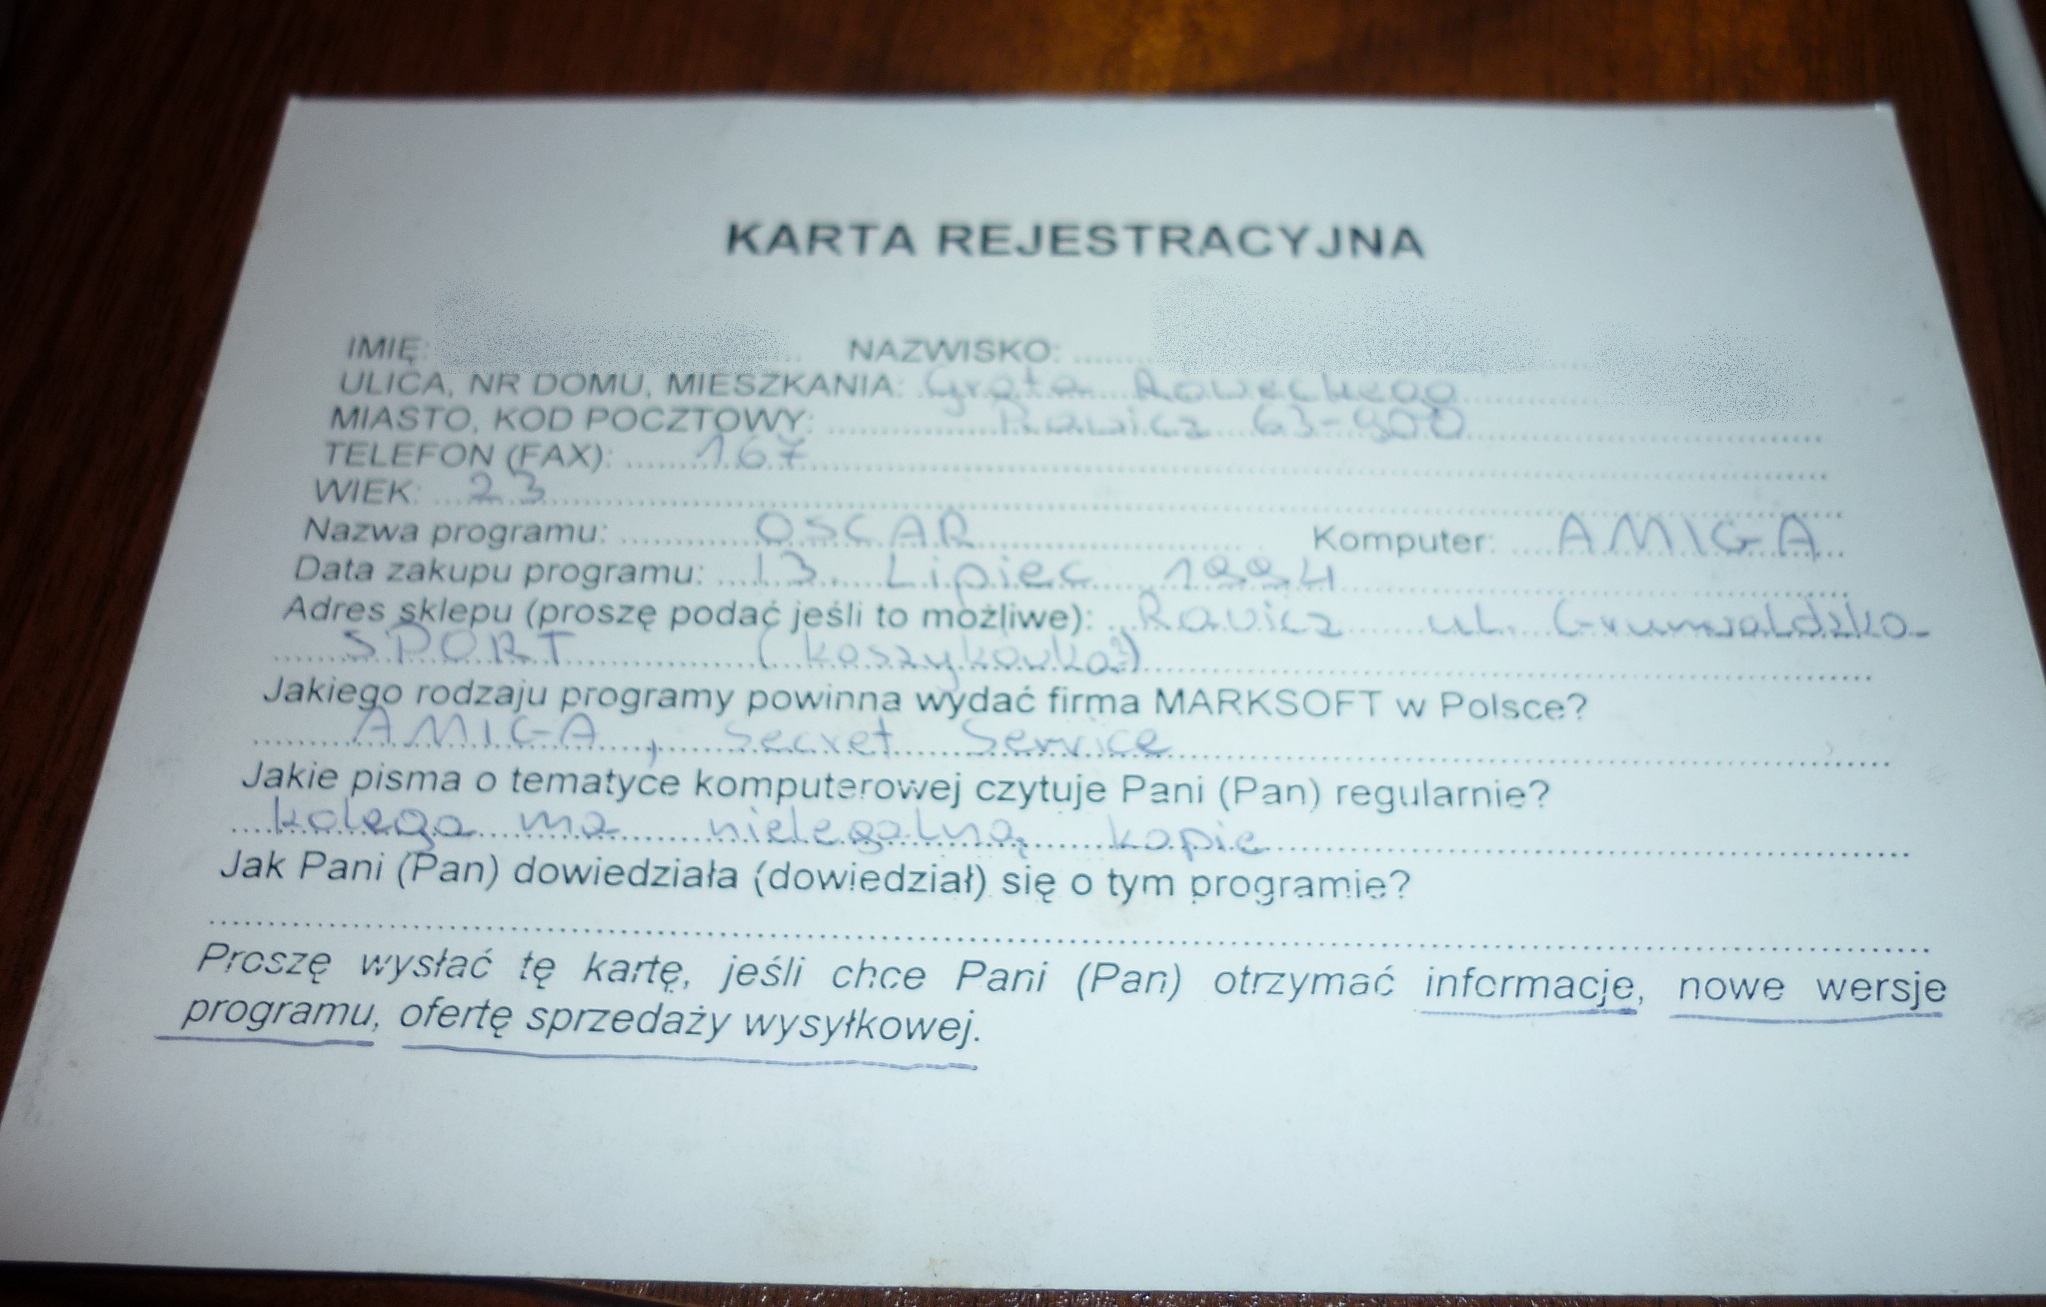 KARTA REJESTRACYJNA
IMIĘ: NAZWISKO:
ULICA, NR DOMU, MIESZKANIA: Grota Roweckiego
MIASTO, KOD POCZTOWY: Rawicz 63-900
TELEFON (FAX): 167
WIEK: 23
Nazwa programu: OSCAR Komputer: AMIGA
Data zakupu programu: 13 Lipiec 1994
Adres sklepu (proszę podać jeśli to możliwe): Rawicz ul. Grunwaldzka
SPORT (koszykówka?)
Jakiego rodzaju programy powinna wydać firma MARKSOFT w Polsce?
AMIGA, Secret Service
Jakie pisma o tematyce komputerowej czytuje Pani (Pan) regularnie?
kolega ma nielegalną kopie
Jak Pani (Pan) dowiedziała (dowiedział) się o tym programie?
Proszę wysłać tę kartę, jeśli chce Pani (Pan) otrzymać informacje, nowe wersje
programu, ofertę sprzedaży wysyłkowej.